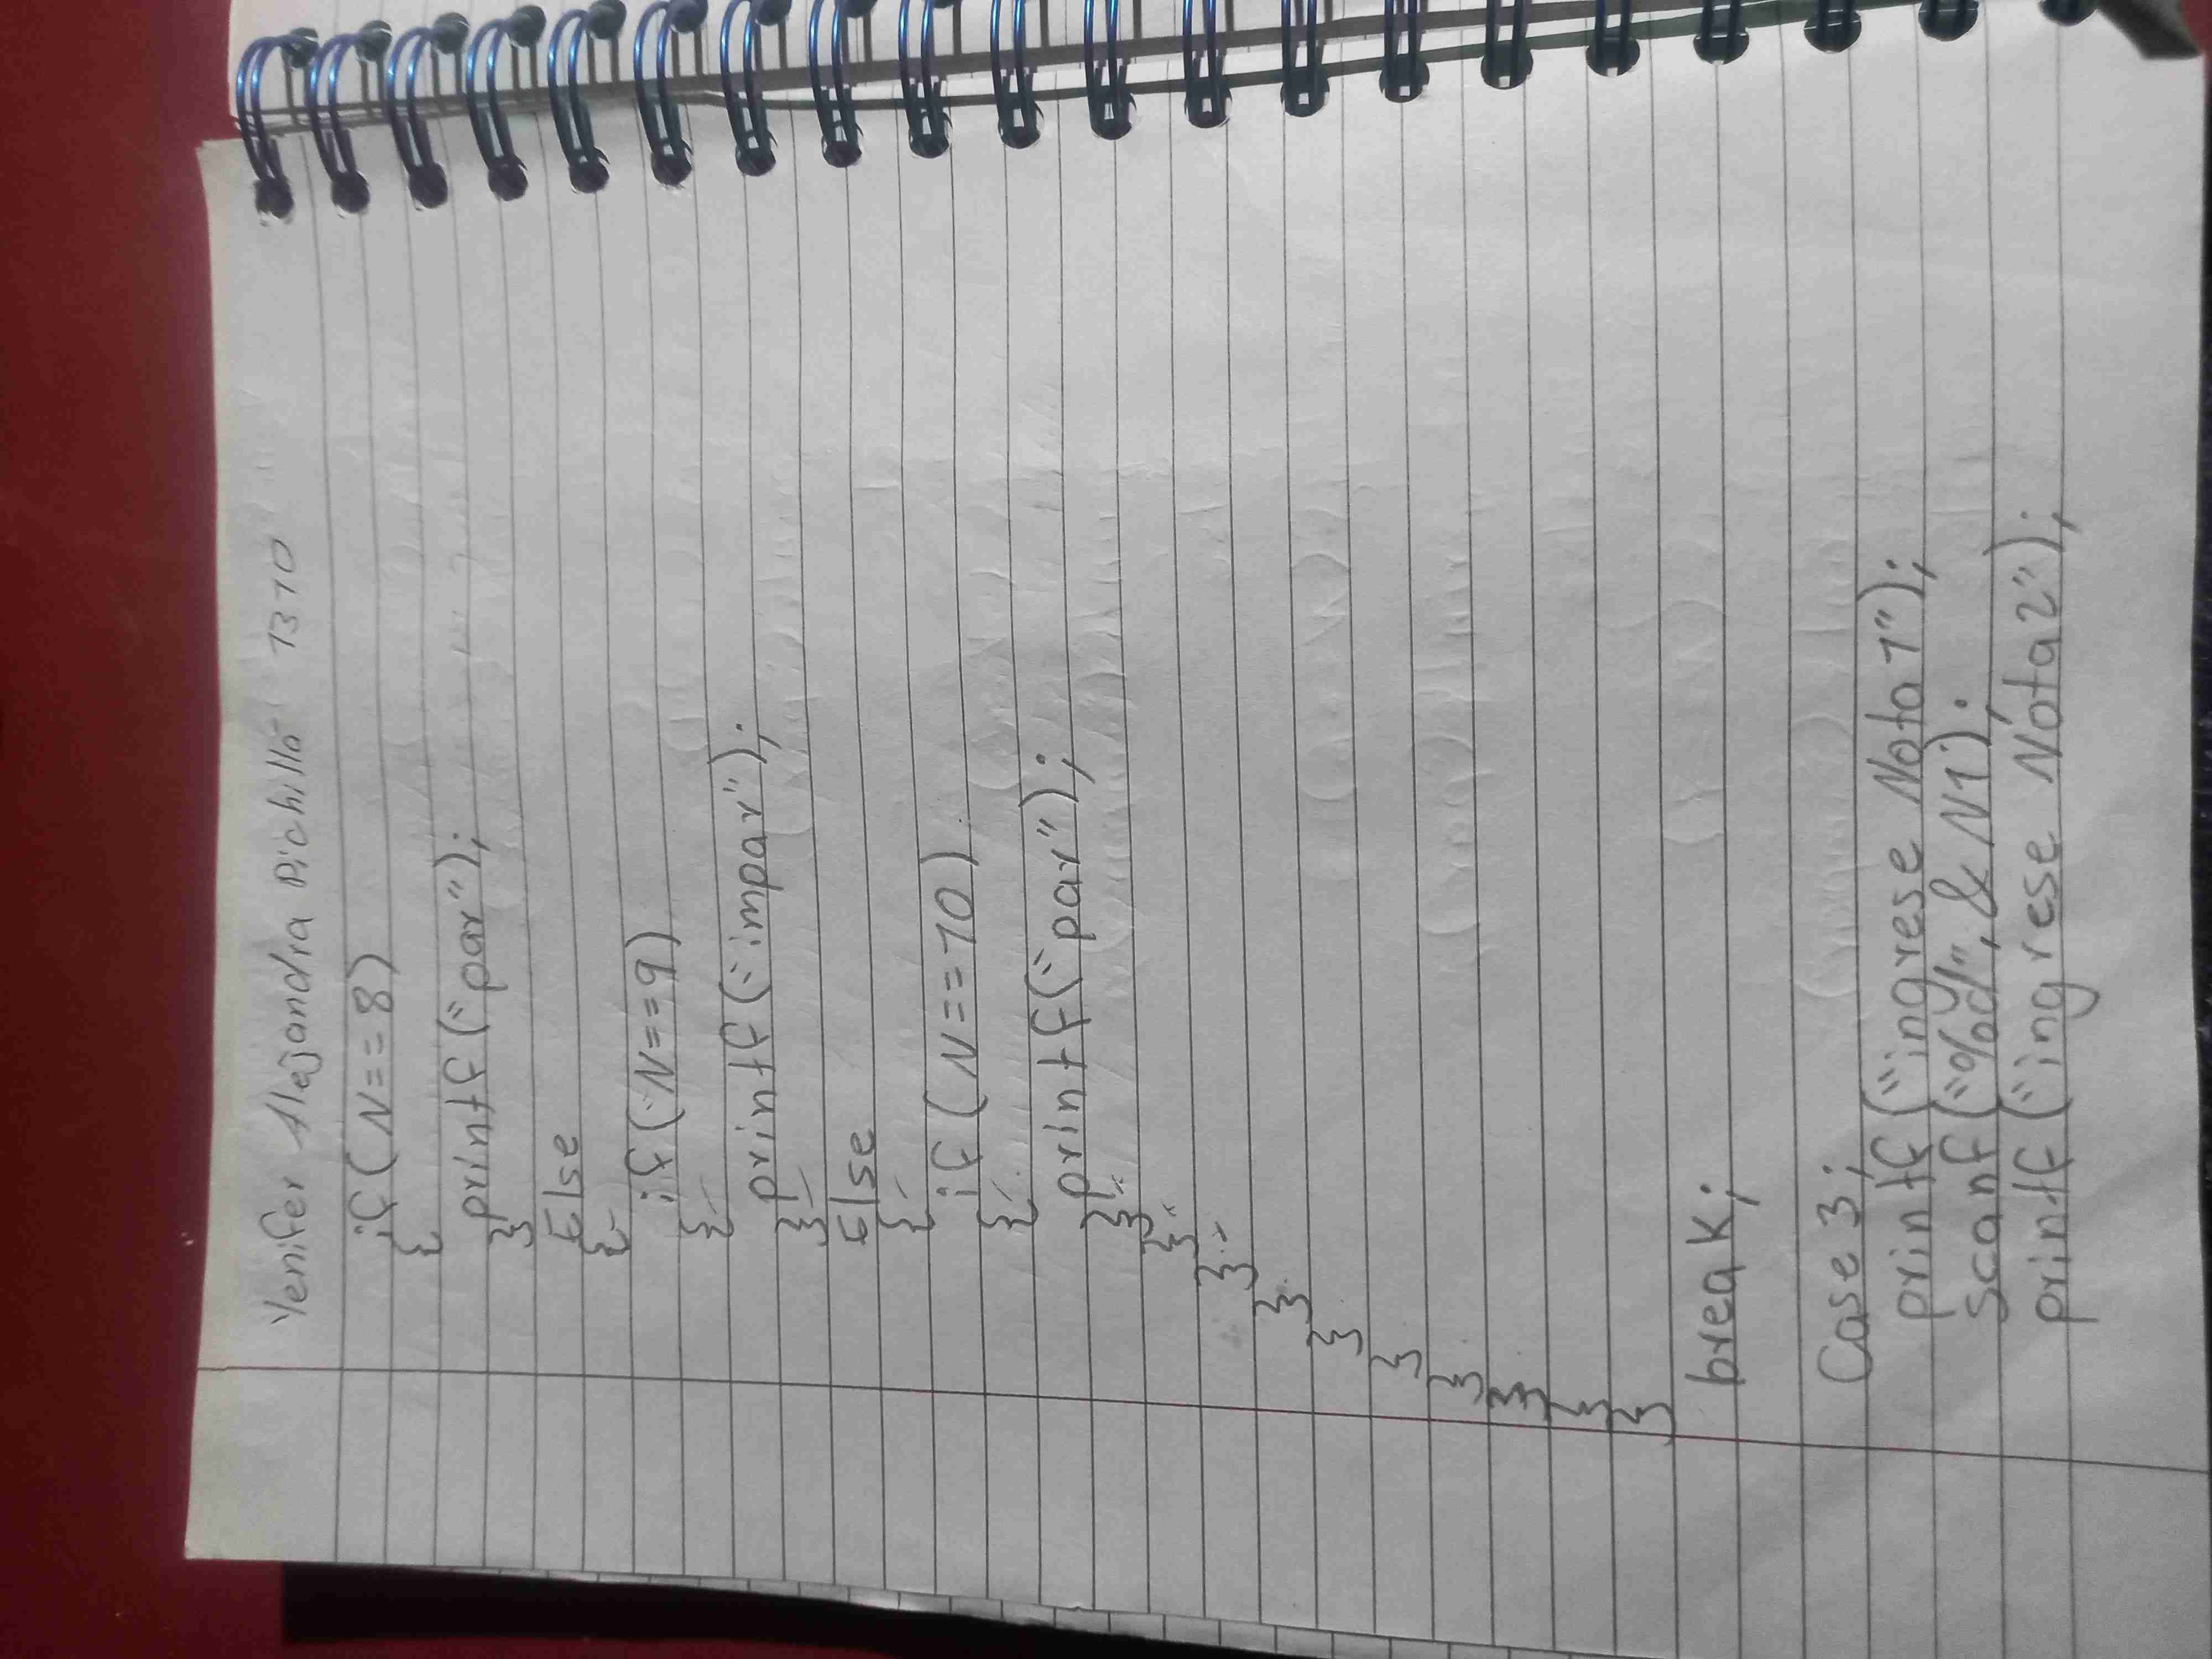 Yenifer Alejandra Pichillá 1310
if (N==8)
{
printf("par");
}
Else
{
if (N==9)
{
printf("impar");
}
Else
{
if (N==10)
{
printf("par");
}
}
}
}
}
}
}
}
}
}
break;
Case 3;
printf("ingrese Nota 1");
Scanf("%d",&N1);
printf("ingrese Nota2");